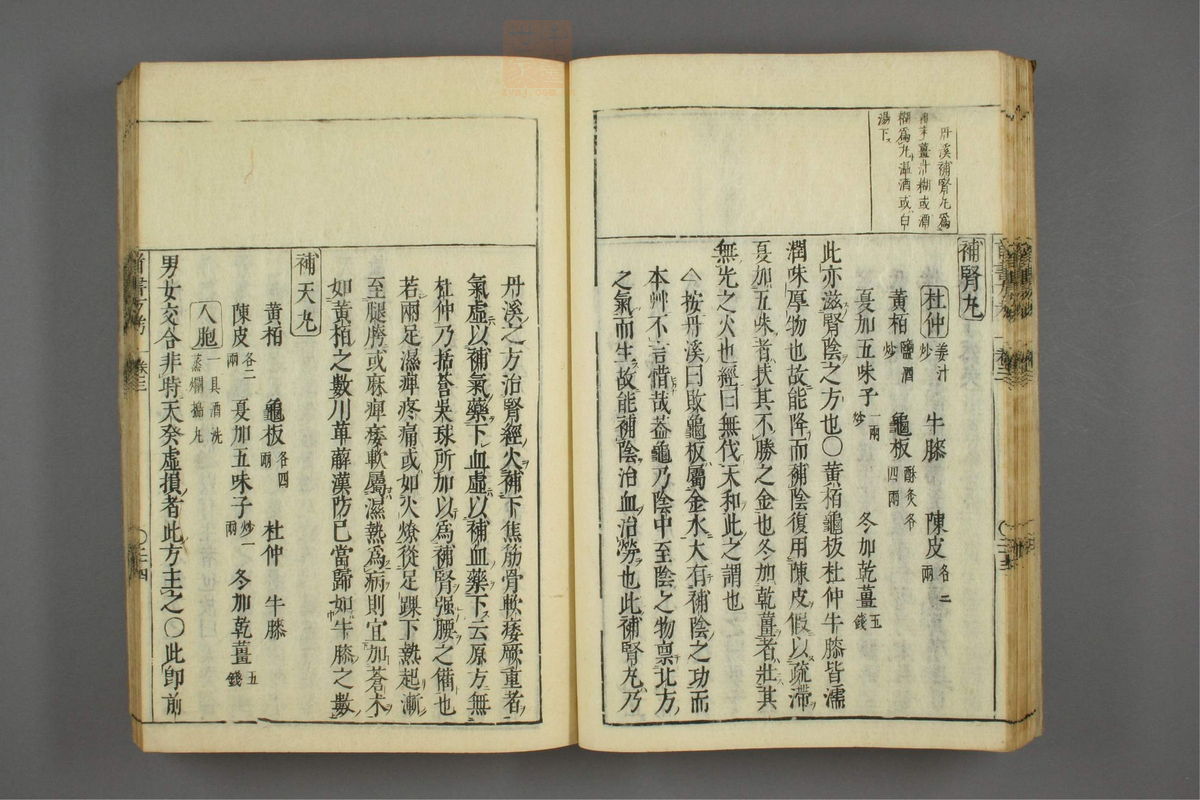 丹溪補腎丸爲
末薑汁糊或酒
糊爲丸溫酒或白
湯下
補腎丸
杜仲姜汁炒　牛膝　陳皮各二兩
黃栢鹽酒炒　龜板酥炙各四兩
夏加五味子一兩炒　冬加乾薑五錢
此亦滋腎陰之方也〇黃栢龜板杜仲牛膝皆濡
潤味厚物也故能降而補陰復用陳皮假以疏滯
夏加五味者扶其不勝之金也冬加乾薑者壯其
無光之火也經曰無伐天和此之謂也
按丹溪曰敗龜板屬金水大有補陰之功而
本艸不言惜哉葢龜乃陰中至陰之物禀北方
之氣而生故能補陰治血治勞也此補腎丸乃
丹溪之方治腎經火補下焦筋骨軟痿厥重者
氣虛以補氣藥下血虛以補血藥下云原方無
杜仲乃括蒼吳球所加以爲補腎强腰之備也
若兩足濕痺疼痛或如火燎從足踝下熱起漸
至腿胯或麻痺痿軟屬濕熱爲病則宜加蒼朮
如黃栢之數川萆薢漢防已當歸如牛膝之數
補天丸
黃栢　龜板各四兩　杜仲　牛膝
陳皮各二兩　夏加五味子炒一兩　冬加乾薑五錢
人胞一具酒洗蒸爛搗丸
男女交合非時天癸虛損者此方主之〇此卽前
卷三
二十四